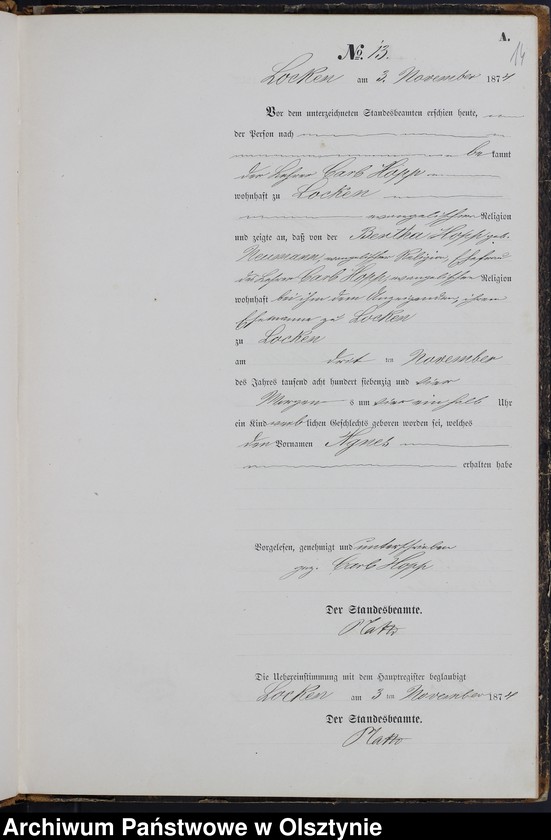 A.
14
No. 13.
Locken am 3. November 1874
Vor dem unterzeichneten Standesbeamten erschien heute,
der Person nach
be kannt
der Lehrer Carl Hopp
wohnhaft zu Locken
evangelischer Religion
und zeigte an, daß von der Bertha Hopp geb.
Neumann, evangelischer Religion, Ehefrau
des Lehrer Carl Hopp, evangelischer Religion
wohnhaft bei ihm dem Anzeigenden, ihrem
Ehemanne zu Locken
zu Locken
am drit ten November
des Jahres tausend acht hundert siebenzig und vier
Morgen s um vier ein halb Uhr
ein Kind weib lichen Geschlechts geboren worden sei, welches
den Vornamen Agnes
erhalten habe
Vorgelesen, genehmigt und unterschrieben
gez. Carl Hopp
Der Standesbeamte.
Die Uebereinstimmung mit dem Hauptregister beglaubigt
Locken am 3 ten November 1874
Der Standesbeamte.
Archiwum Państwowe w Olsztynie